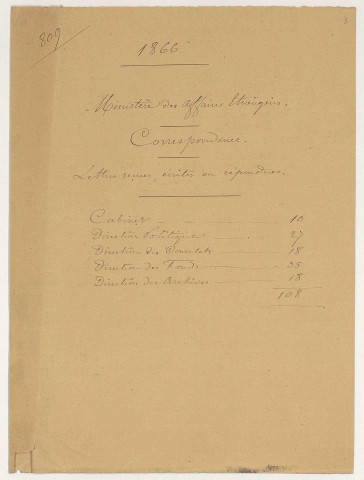 809
1866
Ministère des Affaires Etrangères.
Correspondance.
Lettres reçues, écrites ou répondues.
Cabinet 10
Direction Politique 27
Direction des Consulats 18
Direction des Fonds 35
Direction des Archives 18
108